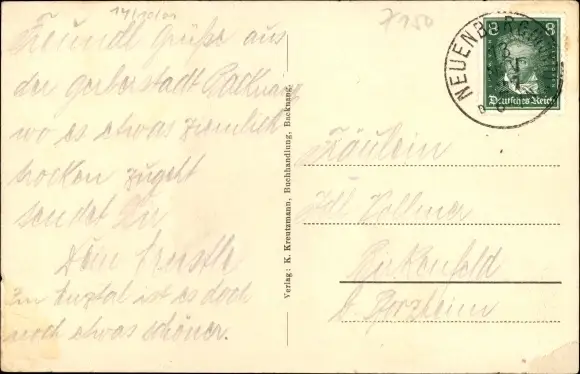 14/10/01
7150
Freundl Grüße aus
der Gerberstadt Backnang
wo es etwas ziemlich
trocken zugeht
sendet
Dein
Im Enztal ist es doch
noch etwas schöner.
Verlag: K. Kreutzmann, Buchhandlung, Backnang.
8 8
Deutsches Reich
NEUENBÜRG
Fräulein
Vollmer
Birkenfeld
b. Pforzheim